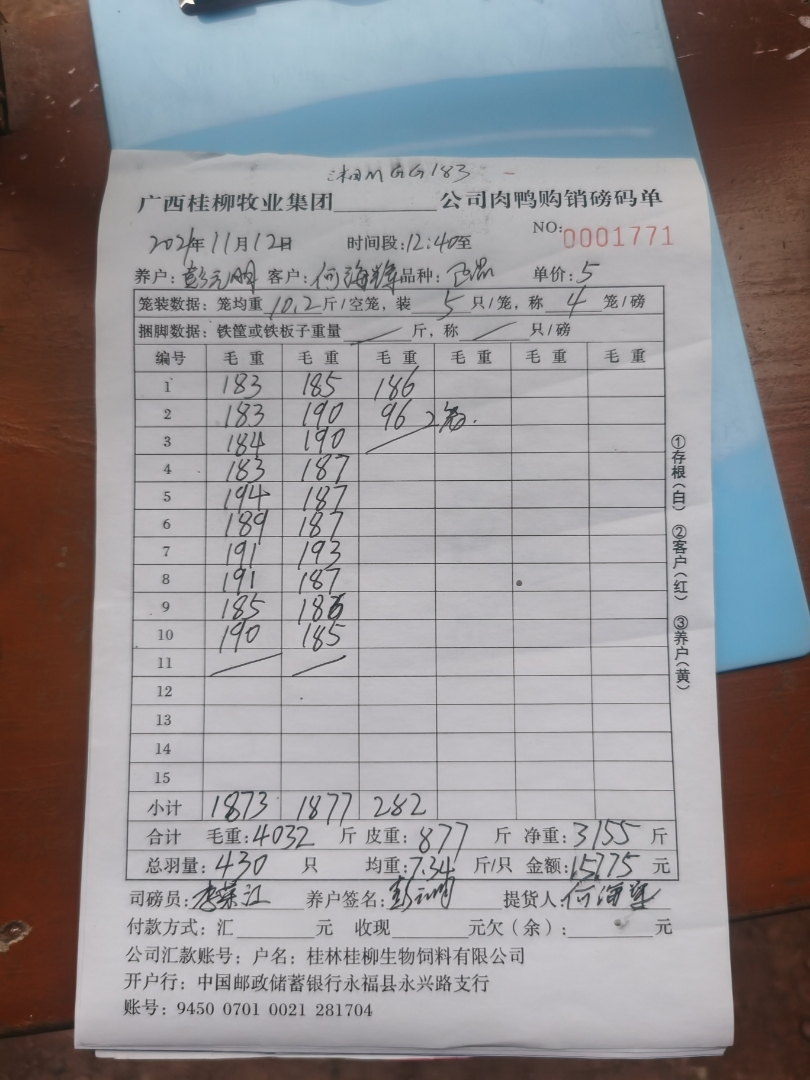 湘MGG183
广西桂柳牧业集团________公司肉鸭购销磅码单
2024年11月12日 时间段:12:40至 NO:0001771
养户:彭元明 客户:何海 品种: 单价:5
笼装数据:笼均重 10.2 斤/空笼,装 5 只/笼,称 4 笼/磅
捆脚数据:铁筐或铁板子重量 / 斤,称 / 只/磅
编号 毛重 毛重 毛重 毛重 毛重 毛重
1 183 185 186
2 183 190 96 2笼.
3 184 190
4 183 187
5 194 187
6 189 187
7 191 193
8 191 187
9 185 186
10 190 185
11
12
13
14
15
小计 1873 1877 282
合计 毛重:4032 斤 皮重:877 斤 净重:3155 斤
总羽量:430 只 均重:7.34 斤/只 金额:15775 元
司磅员:李荣江 养户签名:彭元明 提货人:何海
付款方式:汇______元 收现______元欠(余):______元
公司汇款账号:户名:桂林桂柳生物饲料有限公司
开户行:中国邮政储蓄银行永福县永兴路支行
账号:9450 0701 0021 281704
①存根(白) ②客户(红) ③养户(黄)